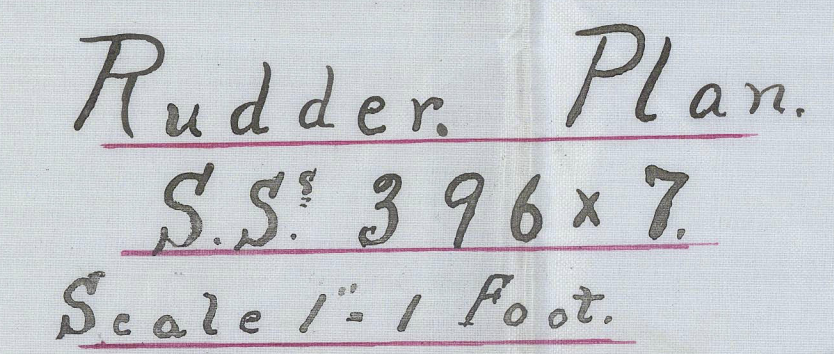 Rudder. Plan.
S.S.ˢ 396 x 7.
Scale 1"-1 Foot.